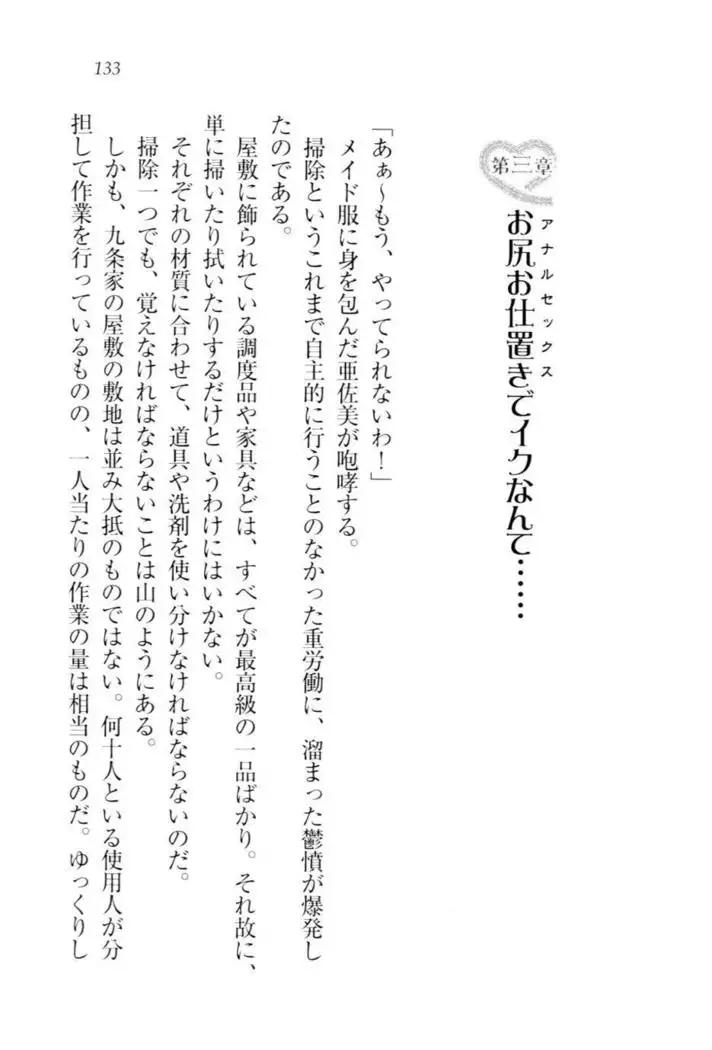 133
第三章
お尻お仕置きでイクなんて……
アナルセックス
「あぁ～もう、やってられないわ！」
メイド服に身を包んだ亜佐美が咆哮する。
掃除というこれまで自主的に行うことのなかった重労働に、溜まった鬱憤が爆発し
たのである。
屋敷に飾られている調度品や家具などは、すべてが最高級の一品ばかり。それ故に、
単に掃いたり拭いたりするだけというわけにはいかない。
それぞれの材質に合わせて、道具や洗剤を使い分けなければならないのだ。
掃除一つでも、覚えなければならないことは山のようにある。
しかも、九条家の屋敷の敷地は並み大抵のものではない。何十人といる使用人が分
担して作業を行っているものの、一人当たりの作業の量は相当のものだ。ゆっくりし